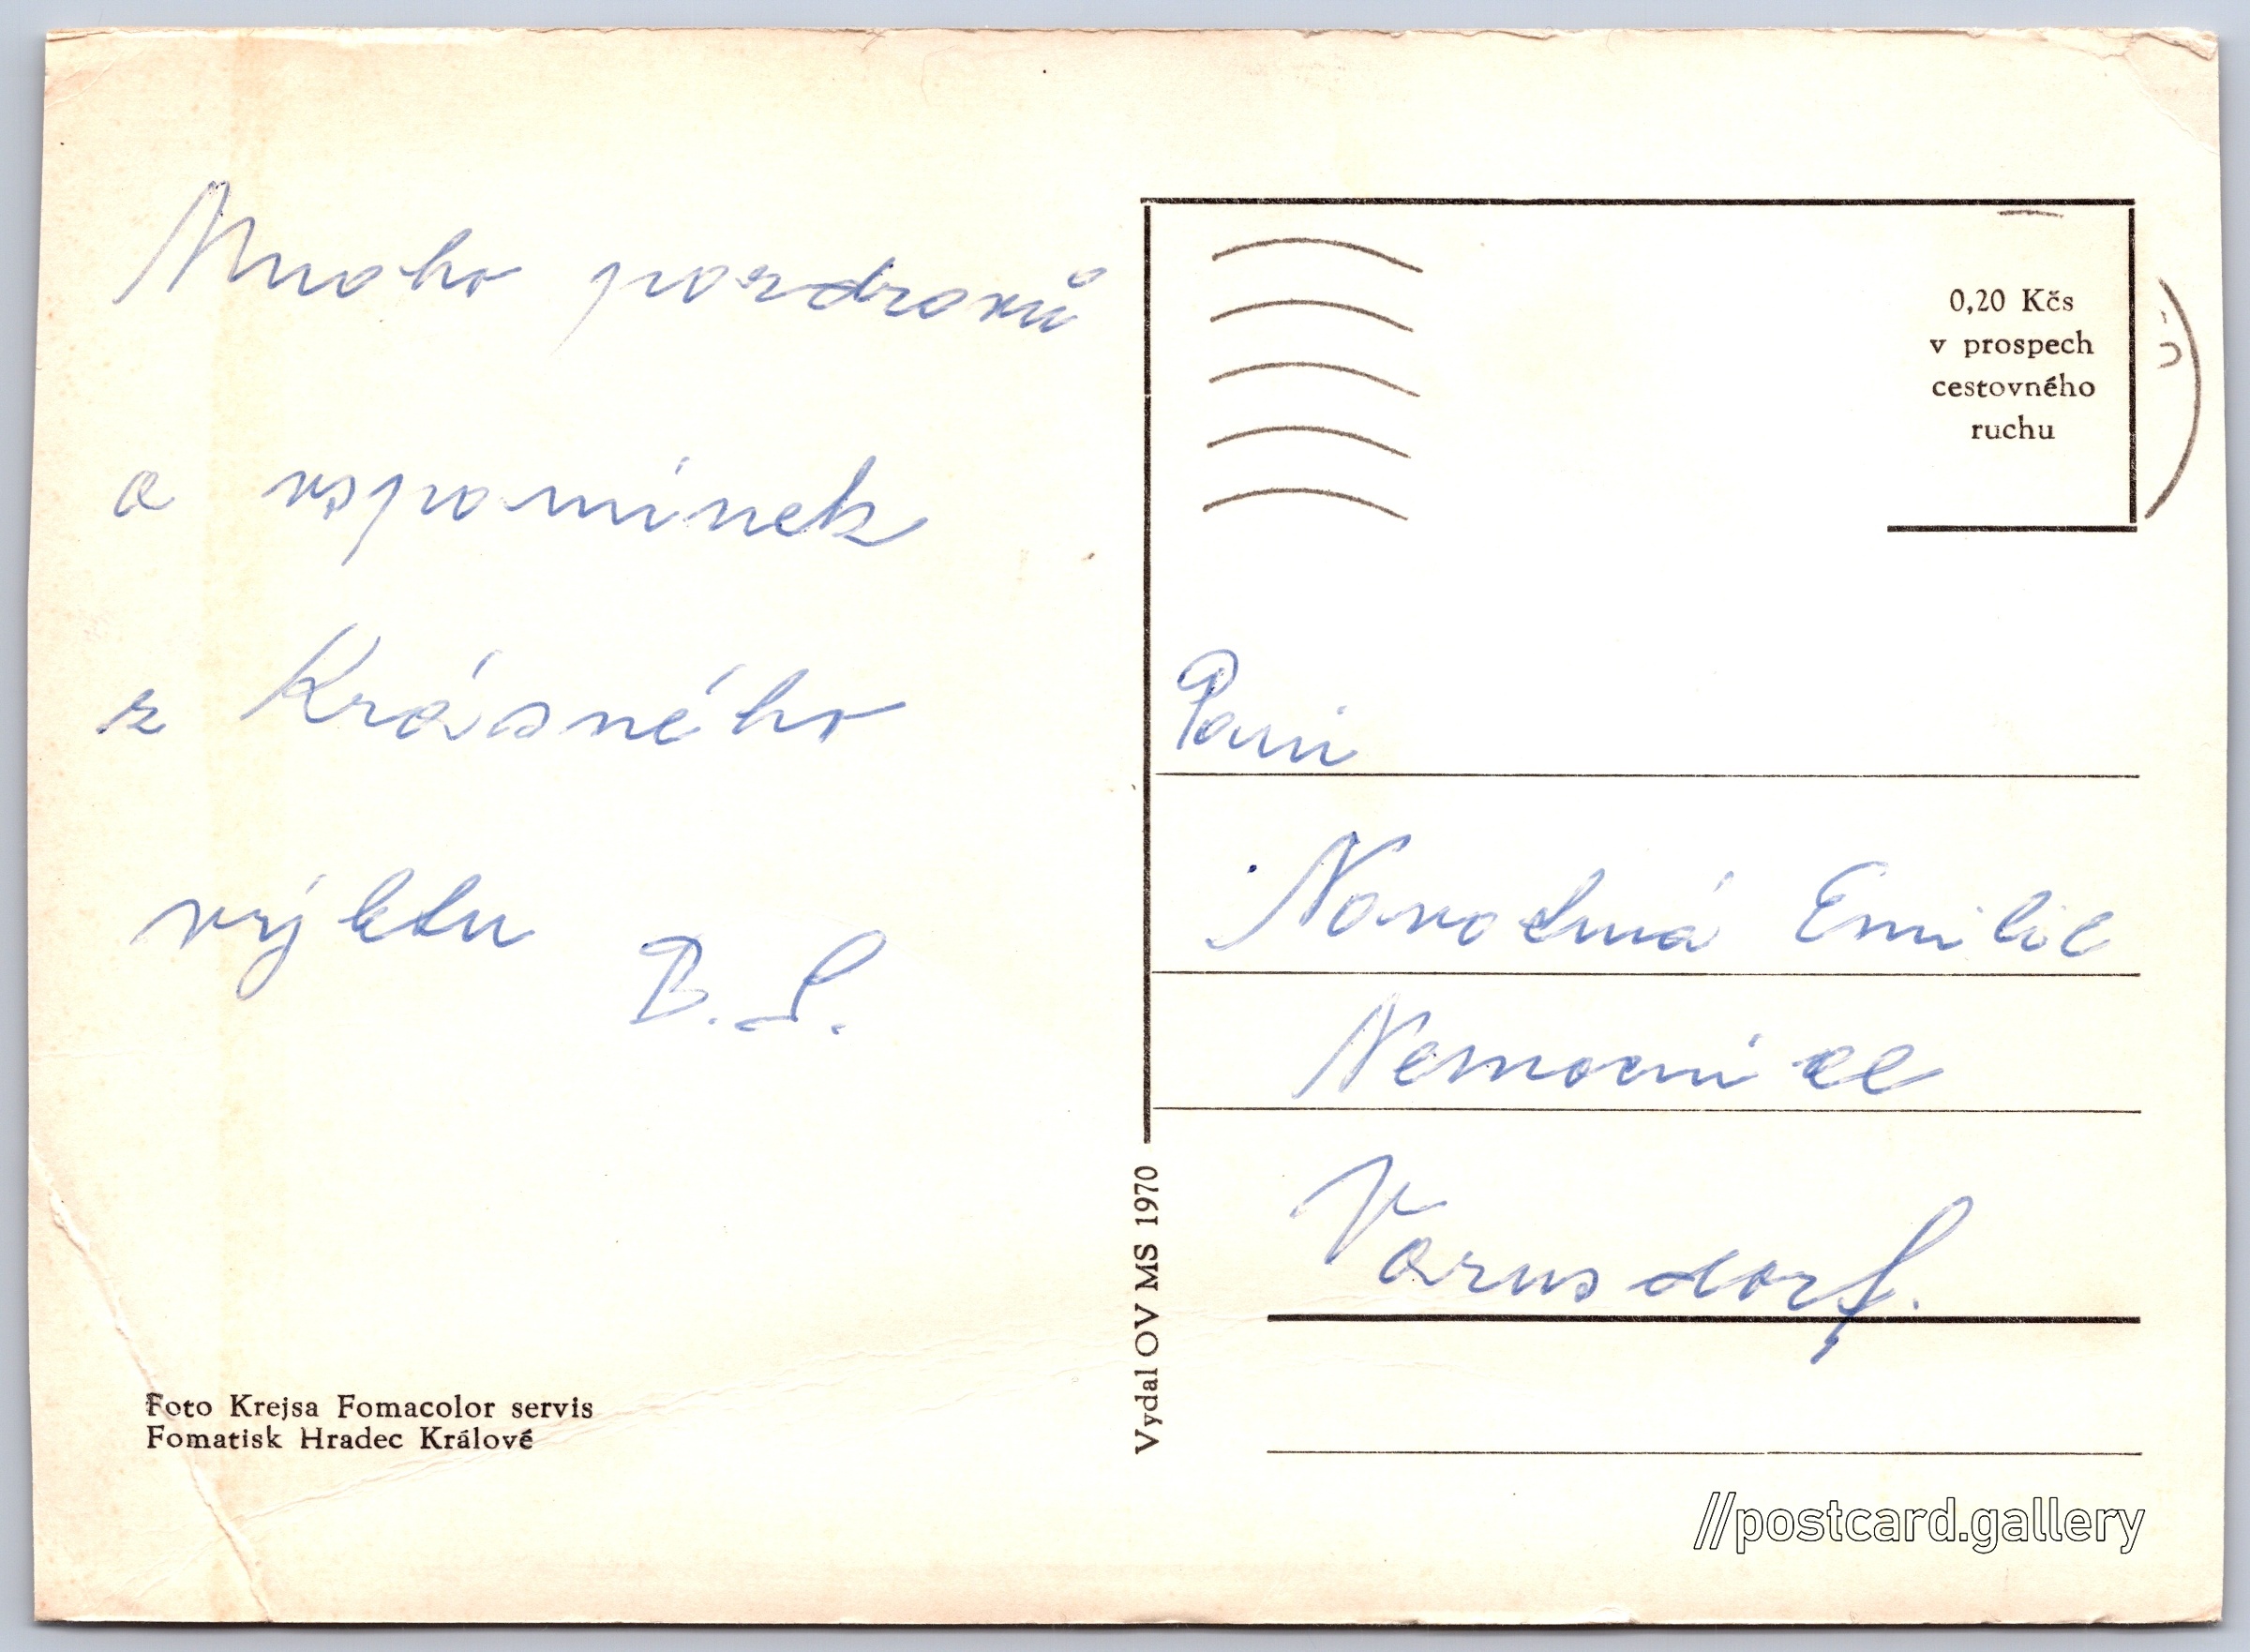 Mnoho pozdravů
a vspomínek
z Krásného
výletu
B. S.
Foto Krejsa Fomacolor servis
Fomatisk Hradec Králové
Vydal OV MS 1970
0,20 Kčs
v prospech
cestovného
ruchu
Paní
Emilie
Nemocnice
Varnsdorf.
//postcard.gallery